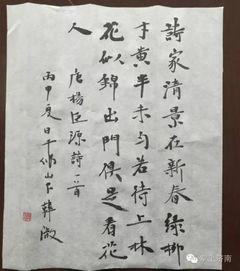 詩家清景在新春綠柳
才黃半未匀若待上林
花似錦出門俱是看花
人 唐楊巨源詩一首
丙申夏日千佛山下韓